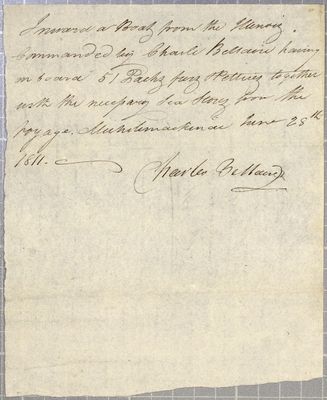 Inward a Boat from the Illinois.
Commanded by Charle Bellair having
on board 51 Packs furs & Peltries together
with the necessary Sea Stores for the
Voyage. Michilimackinac June 28th
1811.
Charles Bellair